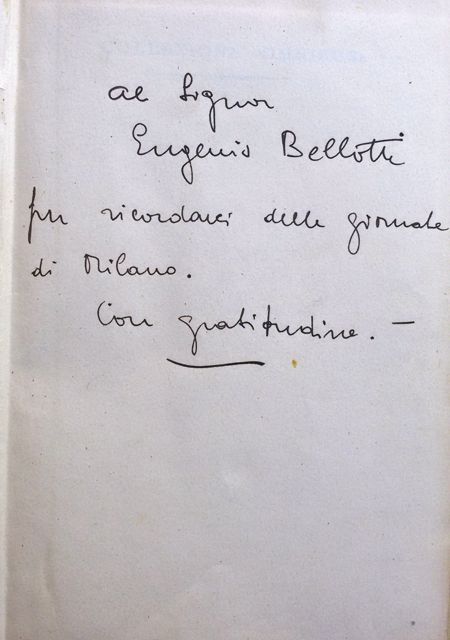 al Signor
Eugenio Bellotti
per ricordarci delle giornate
di Milano.
Con gratitudine. —